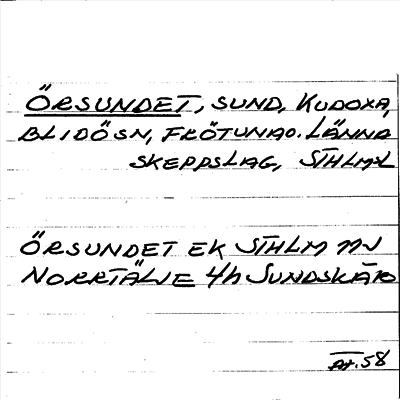 ÖRSUNDET, SUND, KUDOXA,
BLIDÖSN, FRÖTUNA O. LÄNNA
SKEPPSLAG, STHLM L
ÖRSUNDET EK STHLM NV
NORRTÄLJE 4h SUNDSKÄR
58